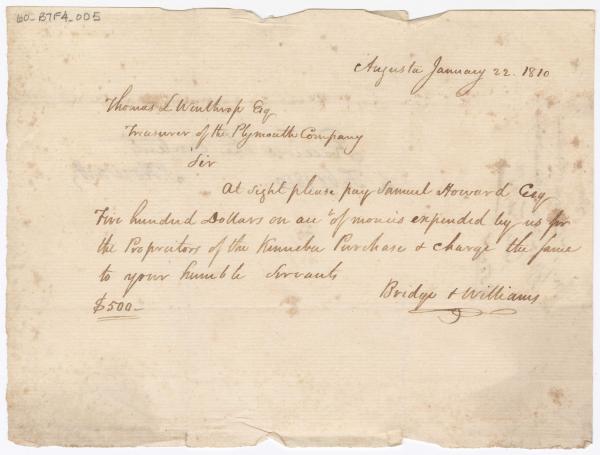 60_B7F4_005
Augusta January 22. 1810
Thomas L Winthrop Esq
Treasurer of the Plymouth Company
Sir
At sight please pay Samuel Howard Esq
Five hundred Dollars on acct of monies expended by us for
the Propritors of the Kennebec Purchase & charge the same
to your humble Servants
Bridge & Williams
$500-